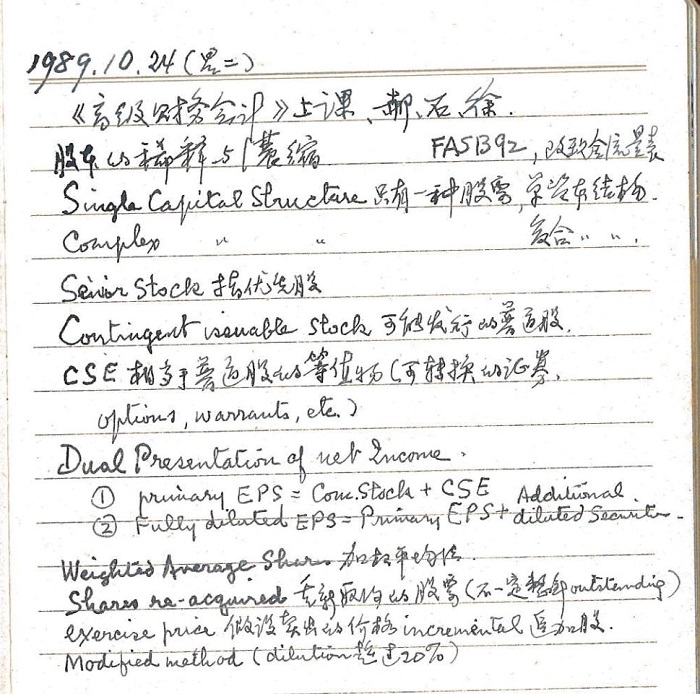 1989.10.24(星二)
《高级财务会计》上课、郝、石、徐.
股本的稀释与浓缩 FASB92,改现金流量表
Single Capital Structure 只有一种股票,单资本结构.
Complex 〃 〃 复合〃〃.
Senior Stock 指优先股
Contingent issuable stock 可能发行的普通股.
CSE 相当于普通股的等值物(可转换的证券,
options, warrants, etc.)
Dual Presentation of net Income.
① primary EPS = Com. Stock + CSE Additional.
② Fully diluted EPS = Primary EPS + diluted Securities.
Weighted Average Share. 加权平均值.
Shares re-acquired 重新取得的股票(不一定 outstanding)
exercise price 假设卖出的价格 incremental 追加股.
Modified method (dilution 超过20%)